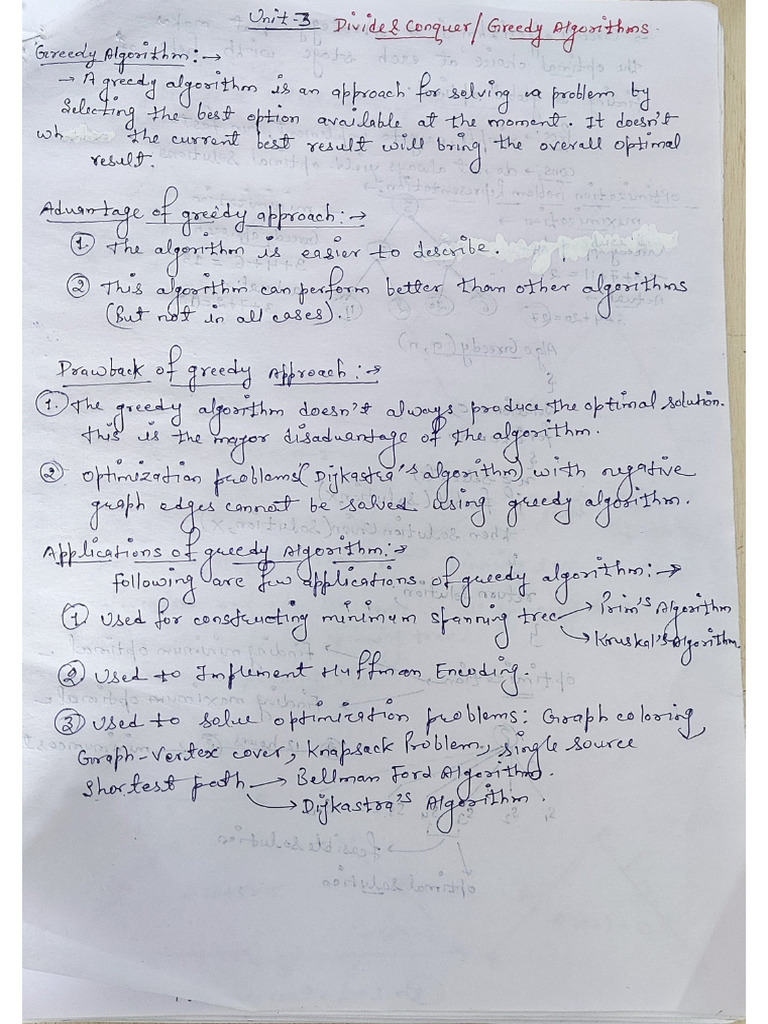 Unit-3 Divide & Conquer / Greedy Algorithms.
Greedy Algorithm :→
→ A greedy algorithm is an approach for solving a problem by
Selecting the best option available at the moment. It doesn't
wh the current best result will bring the overall optimal
result.
Advantage of greedy approach :→
① The algorithm is easier to describe.
② This algorithm can perform better than other algorithms
(But not in all cases).!!
Drawback of greedy Approach :→
①. The greedy algorithm doesn't always produce the optimal solution.
This is the major disadvantage of the algorithm.
② Optimization problems (Dijkastra's algorithm) with negative
graph edges cannot be solved using greedy algorithm.
Applications of greedy Algorithm :→
Following are few applications of greedy algorithm :→
① Used for constructing minimum spanning tree → Prim's Algorithm
→ Kruskal's Algorithm.
② Used to Implement Huffman Encoding.
③ Used to solve optimization problems: Graph coloring,
Graph-Vertex cover, Knapsack Problem, single source
shortest path → Bellman Ford Algorithm.
→ Dijkastra's Algorithm.